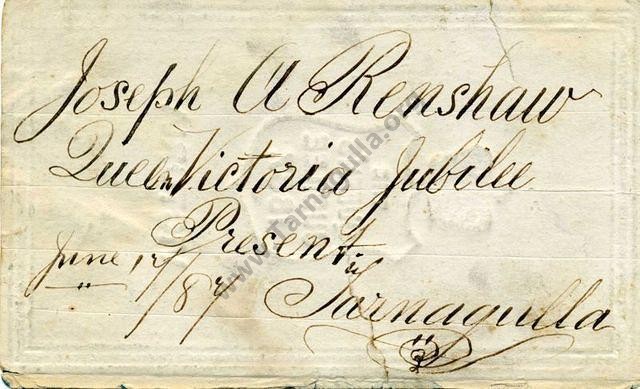 Joseph A Renshaw
Queen Victoria Jubilee
Present
June 17/87 Tarnagulla
www.tarnagulla.org